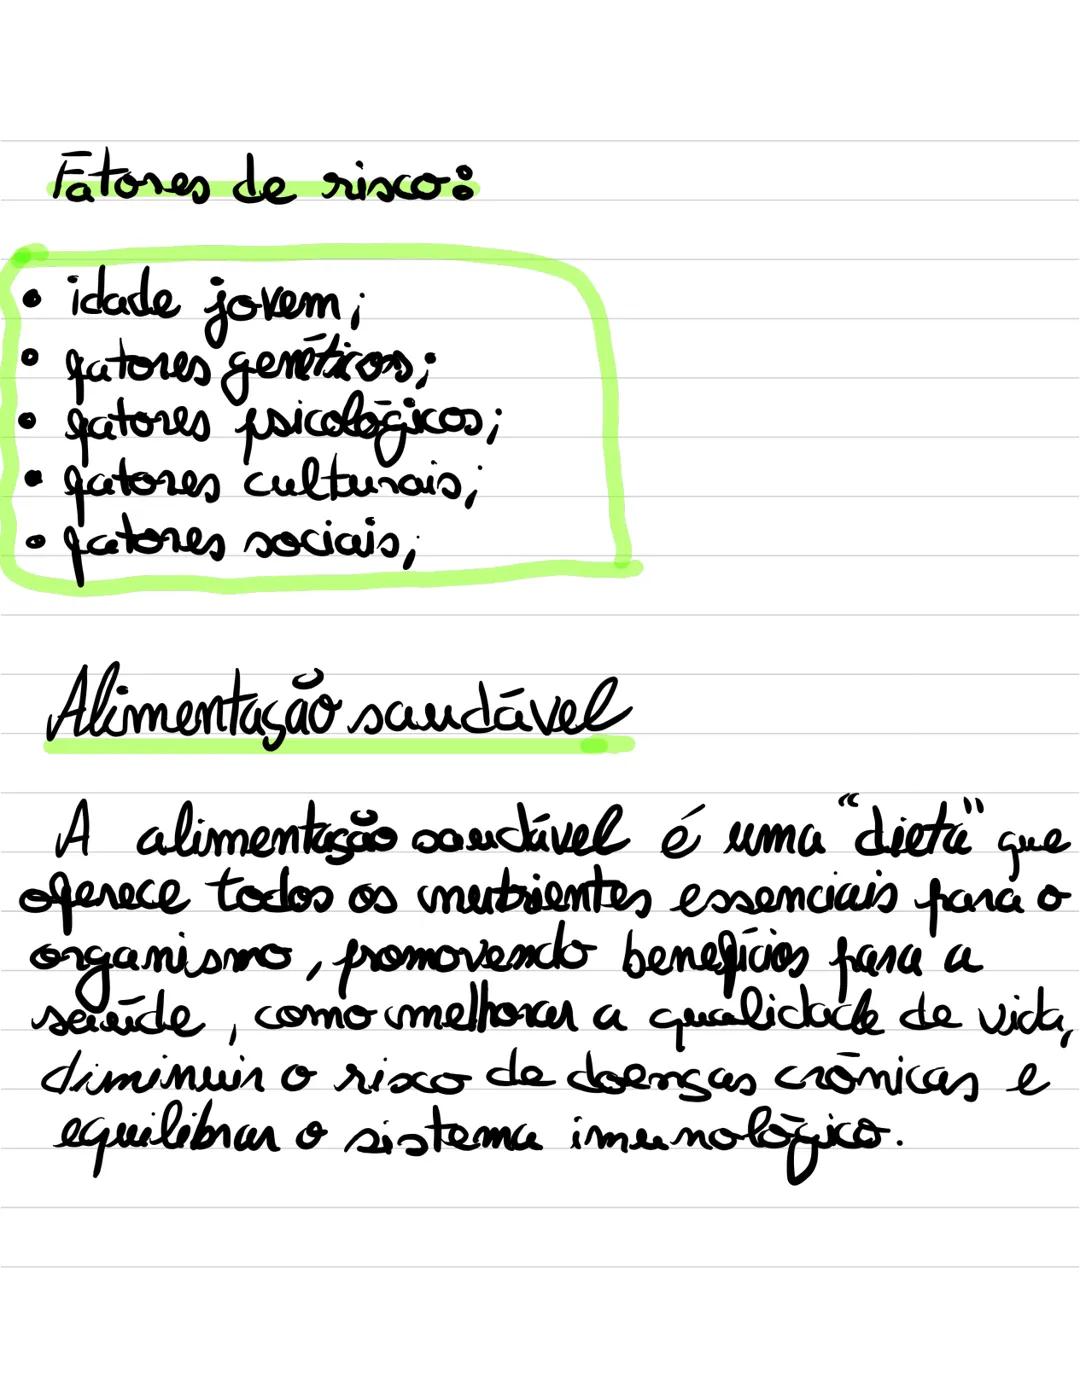 Fatores de risco:
• idade jovem;
• fatores genéticos;
• fatores psicológicos;
• fatores culturais;
• fatores sociais;
Alimentação saudável
A alimentação saudável é uma "dieta" que
oferece todos os nutrientes essenciais para o
organismo, promovendo benefícios para a
saúde, como melhorar a qualidade de vida,
diminuir o risco de doenças crônicas e
equilibrar o sistema imunológico.